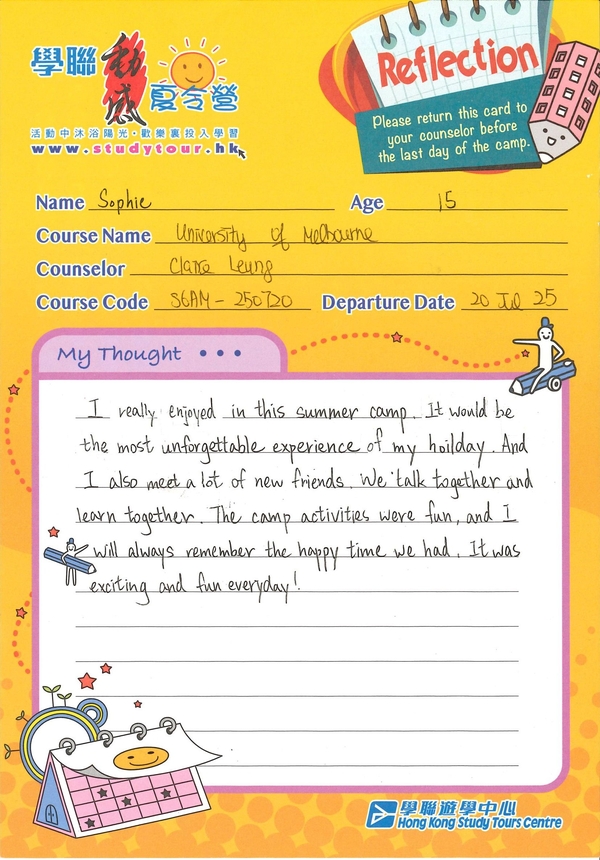 學聯 動感 夏令營
活動中沐浴陽光・歡樂裏投入學習
www.studytour.hk
Reflection
Please return this card to
your counselor before
the last day of the camp.
Name Sophie Age 15
Course Name University of Melbourne
Counselor Claire Leung
Course Code S6AM - 250720 Departure Date 20 Jul 25
My Thought • • •
I really enjoyed in this summer camp. It would be
the most unforgettable experience of my hoilday. And
I also meet a lot of new friends. We talk together and
learn together. The camp activities were fun, and I
will always remember the happy time we had. It was
exciting and fun everyday!
學聯遊學中心
Hong Kong Study Tours Centre